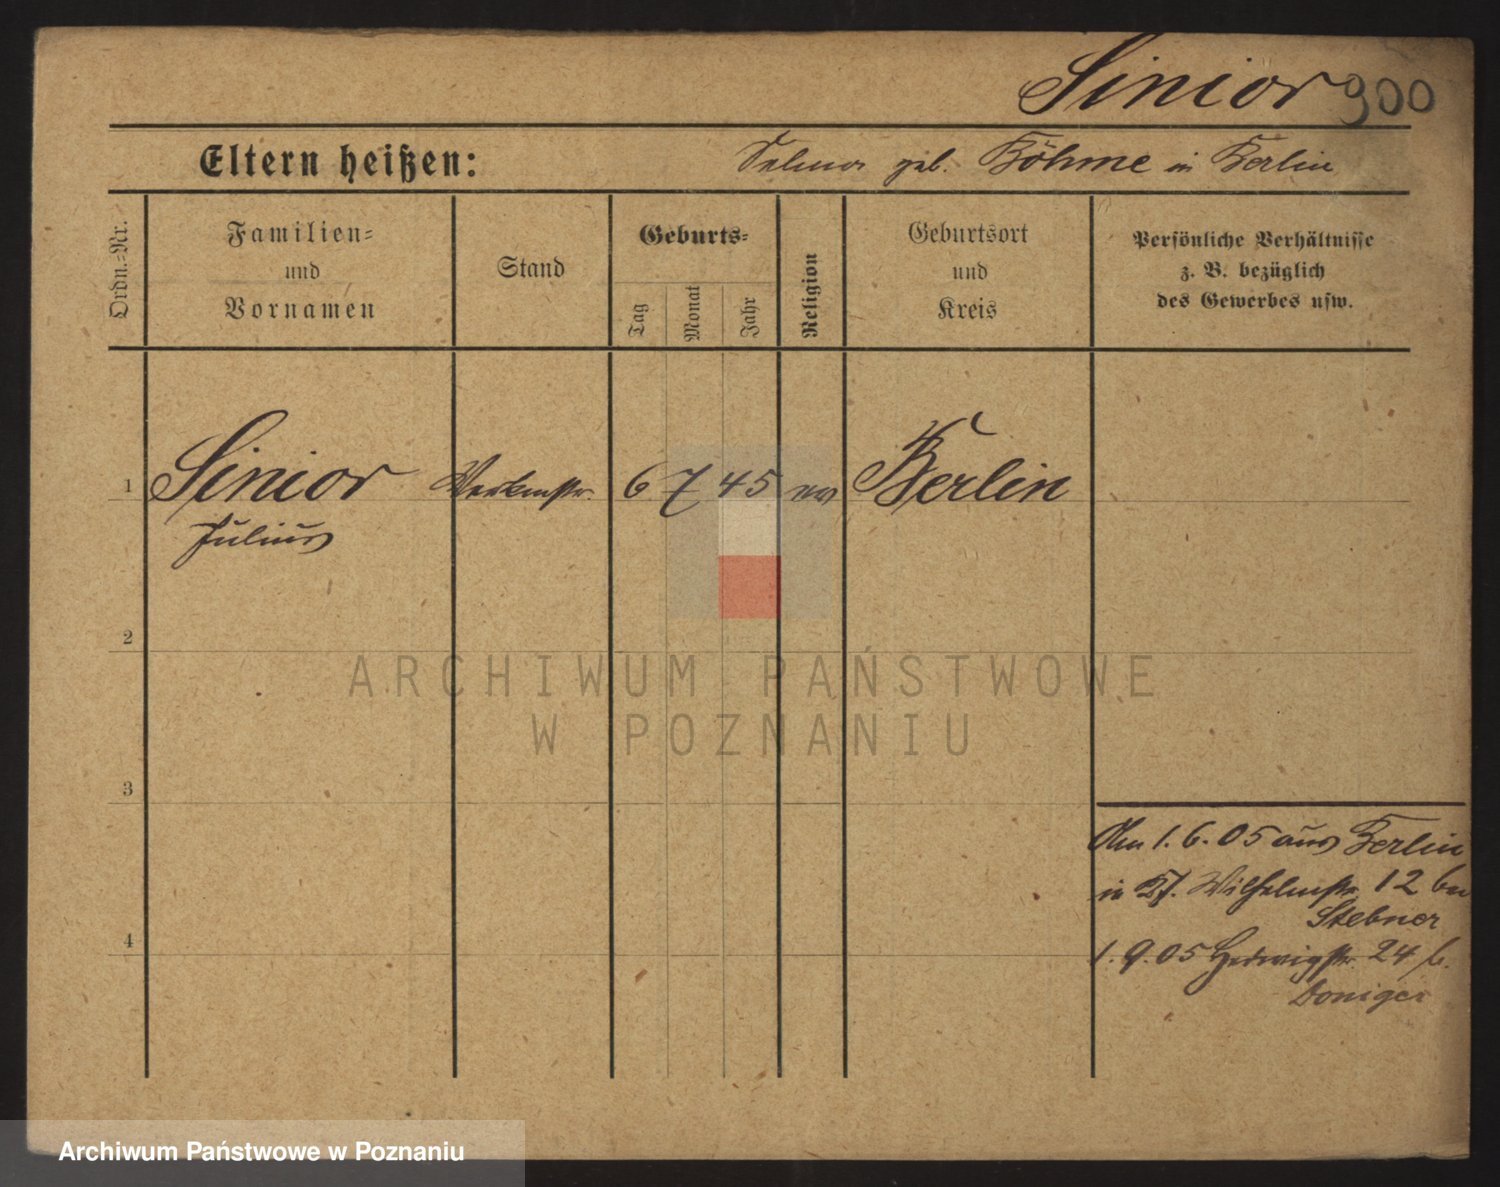 Sinior 900
Eltern heißen:
Selma geb. Böhme in Berlin
Ordn.-Nr.
Familien-
und
Vornamen
Stand
Geburts-
Tag
Monat
Jahr
Religion
Geburtsort
und
Kreis
Persönliche Verhältnisse
z. B. bezüglich
des Gewerbes usw.
1 Sinior Werkmstr. 6 7 45 ev Berlin
Julius
2
3
4
Am 1. 6. 05 aus Berlin
in Wilhelmstr. 12 bei
Stebner
1. 9. 05 Hedwigstr. 24 b.
Doniger
ARCHIWUM PAŃSTWOWE
W POZNANIU
Archiwum Państwowe w Poznaniu